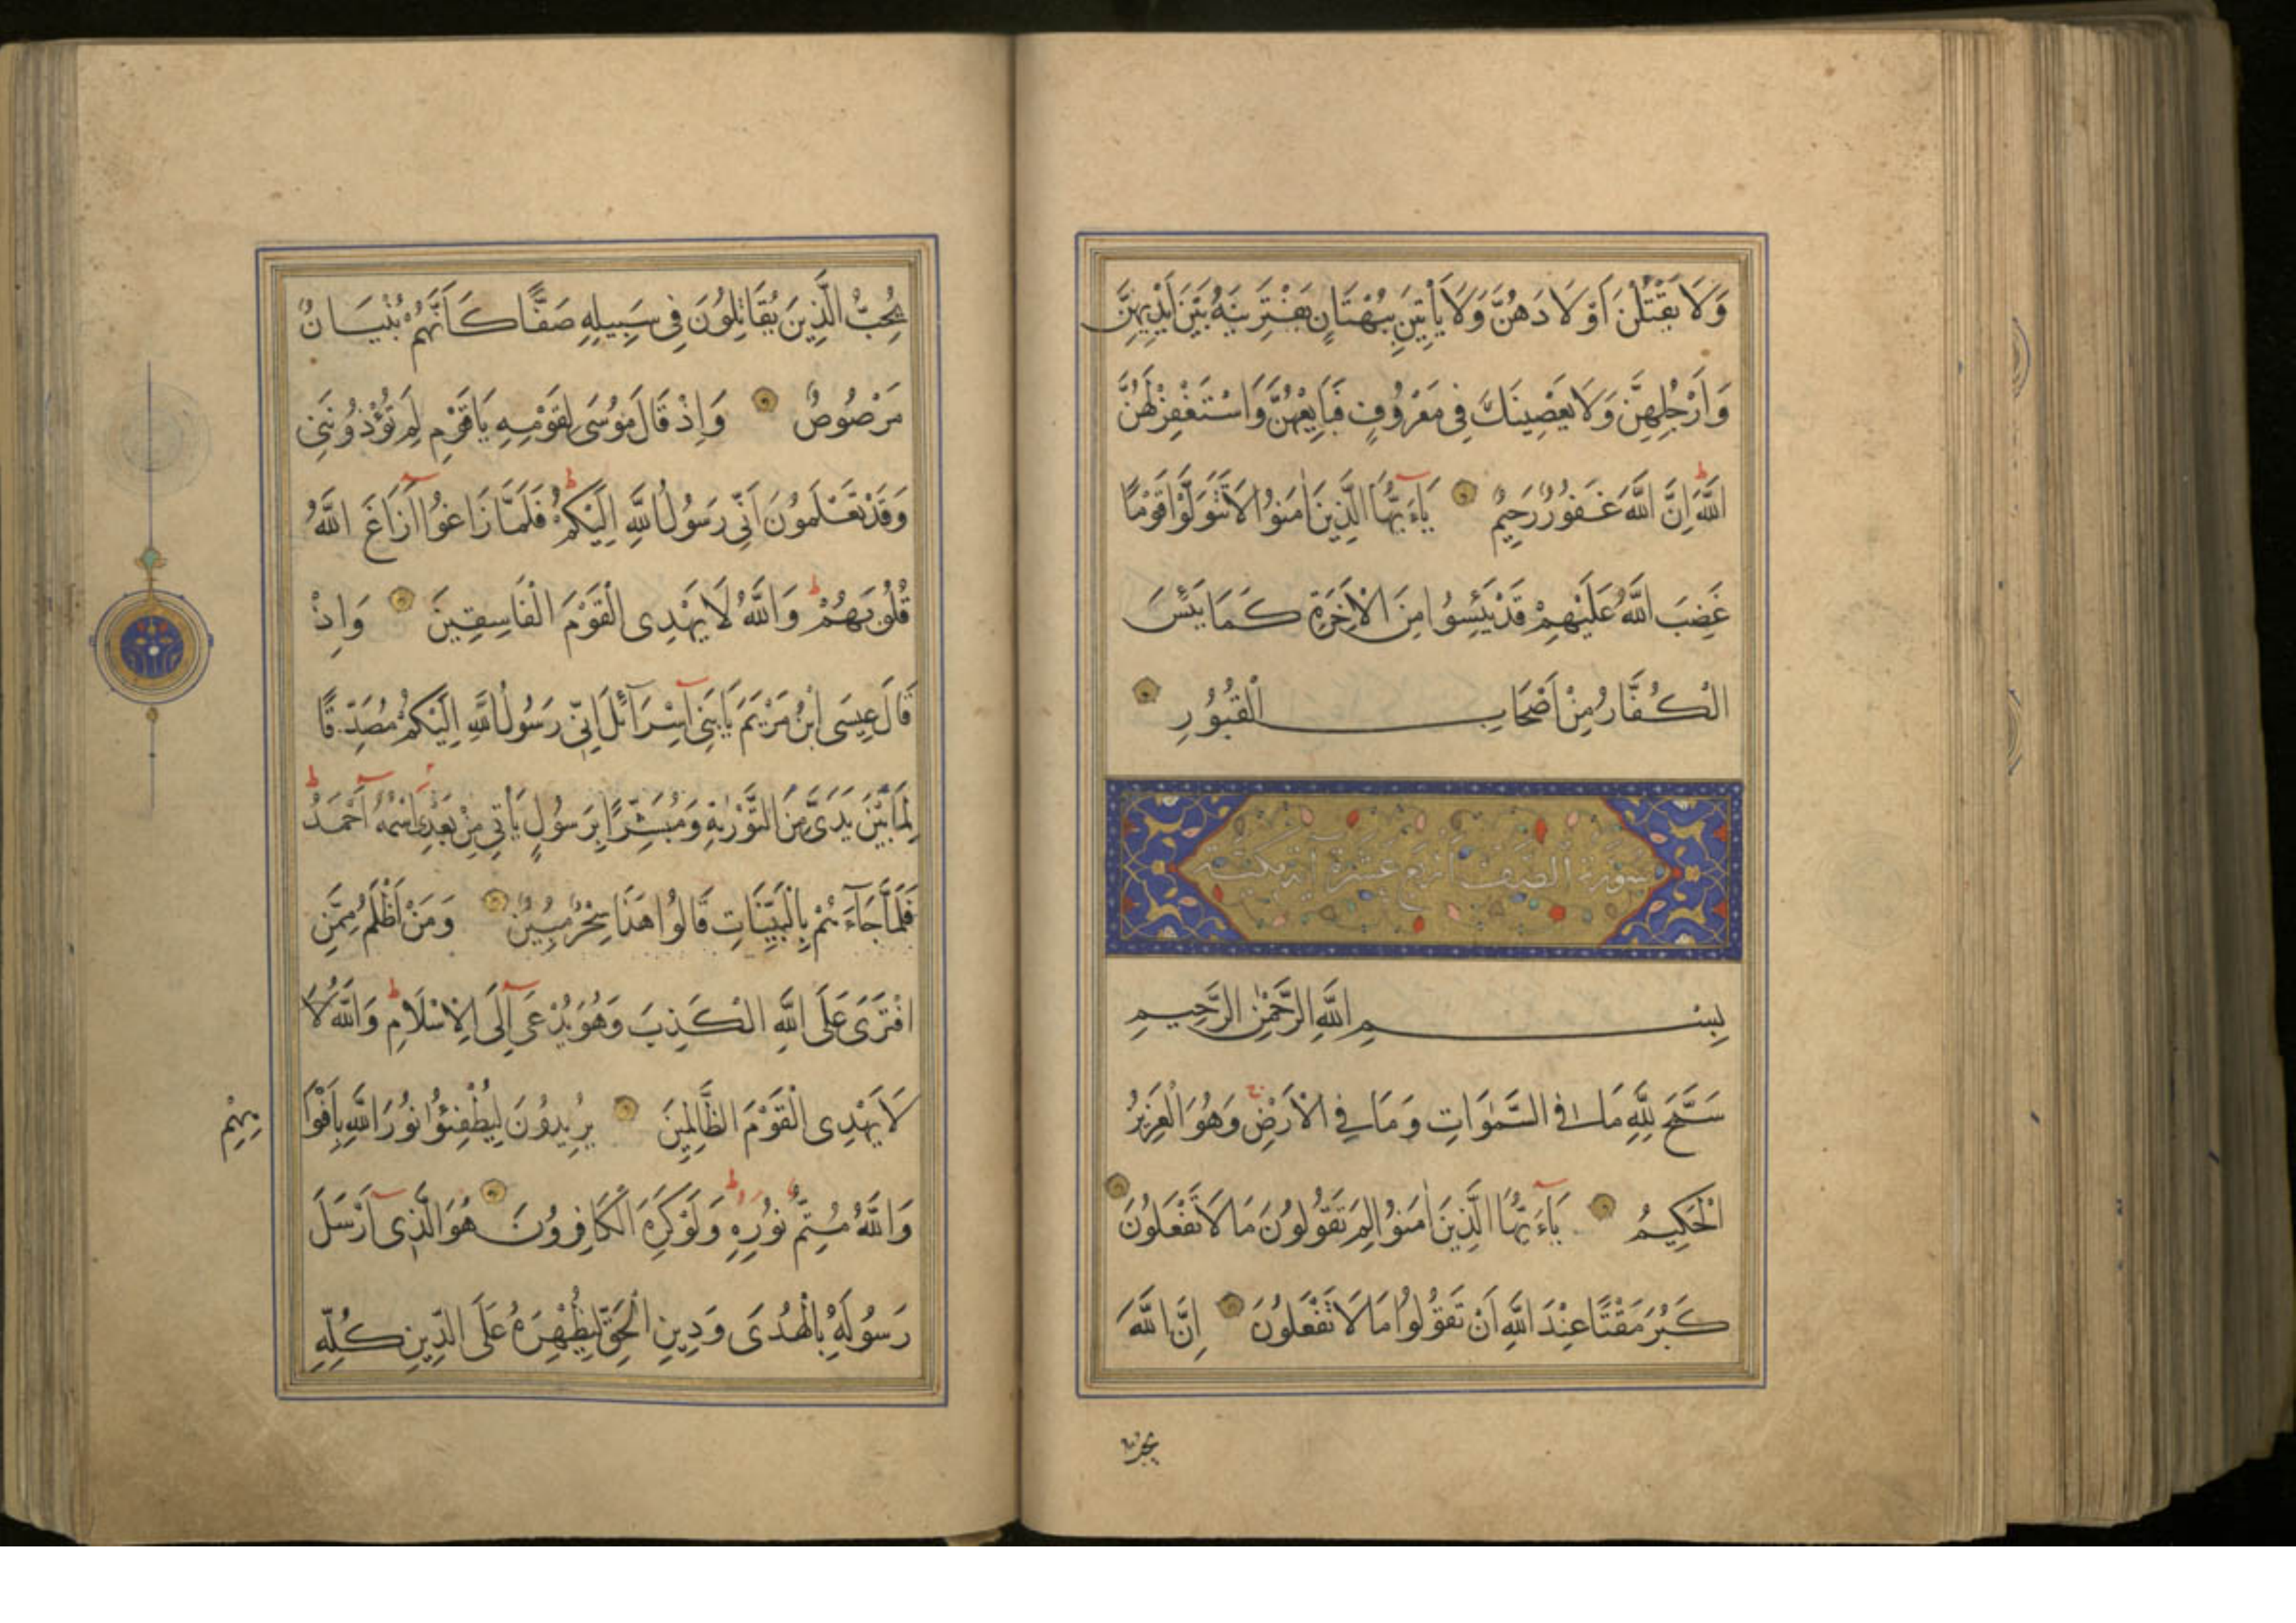 وَلَا يَقْتُلْنَ أَوْلَادَهُنَّ وَلَا يَأْتِينَ بِبُهْتَانٍ يَفْتَرِينَهُ بَيْنَ أَيْدِيهِنَّ
وَأَرْجُلِهِنَّ وَلَا يَعْصِينَكَ فِي مَعْرُوفٍ فَبَايِعْهُنَّ وَاسْتَغْفِرْ لَهُنَّ
اللَّهَ إِنَّ اللَّهَ غَفُورٌ رَحِيمٌ يَاءَيُّهَا الَّذِينَ اٰمَنُوا لَا تَتَوَلَّوْا قَوْمًا
غَضِبَ اللَّهُ عَلَيْهِمْ قَدْ يَئِسُوا مِنَ الْاٰخِرَةِ كَمَا يَئِسَ
الْكُفَّارُ مِنْ أَصْحَابِ الْقُبُورِ
سورة الصف اربع عشرة اية مكية
بِسْمِ اللَّهِ الرَّحْمٰنِ الرَّحِيمِ
سَبَّحَ لِلَّهِ مَا فِي السَّمٰوَاتِ وَمَا فِي الْأَرْضِ وَهُوَ الْعَزِيزُ
الْحَكِيمُ يَاءَيُّهَا الَّذِينَ اٰمَنُوا لِمَ تَقُولُونَ مَا لَا تَفْعَلُونَ
كَبُرَ مَقْتًا عِنْدَ اللَّهِ أَنْ تَقُولُوا مَا لَا تَفْعَلُونَ إِنَّ اللَّهَ
يحب
يُحِبُّ الَّذِينَ يُقَاتِلُونَ فِي سَبِيلِهِ صَفًّا كَأَنَّهُمْ بُنْيَانٌ
مَرْصُوصٌ وَإِذْ قَالَ مُوسَى لِقَوْمِهِ يَاقَوْمِ لِمَ تُؤْذُونَنِي
وَقَدْ تَعْلَمُونَ أَنِّي رَسُولُ اللَّهِ إِلَيْكُمْ فَلَمَّا زَاغُوا أَزَاغَ اللَّهُ
قُلُوبَهُمْ وَاللَّهُ لَا يَهْدِي الْقَوْمَ الْفَاسِقِينَ وَإِذْ
قَالَ عِيسَى ابْنُ مَرْيَمَ يَابَنِي إِسْرَائِلَ إِنِّي رَسُولُ اللَّهِ إِلَيْكُمْ مُصَدِّقًا
لِمَا بَيْنَ يَدَيَّ مِنَ التَّوْرٰيةِ وَمُبَشِّرًا بِرَسُولٍ يَأْتِي مِنْ بَعْدِي اسْمُهُ أَحْمَدُ
فَلَمَّا جَاءَهُمْ بِالْبَيِّنَاتِ قَالُوا هَذَا سِحْرٌ مُبِينٌ وَمَنْ أَظْلَمُ مِمَّنِ
افْتَرَى عَلَى اللَّهِ الْكَذِبَ وَهُوَ يُدْعَى إِلَى الْإِسْلَامِ وَاللَّهُ لَا
لَا يَهْدِي الْقَوْمَ الظَّالِمِينَ يُرِيدُونَ لِيُطْفِئُوا نُورَ اللَّهِ بِأَفْوَا
هِهِمْ
وَاللَّهُ مُتِمُّ نُورِهِ وَلَوْ كَرِهَ الْكَافِرُونَ هُوَ الَّذِي أَرْسَلَ
رَسُولَهُ بِالْهُدَى وَدِينِ الْحَقِّ لِيُظْهِرَهُ عَلَى الدِّينِ كُلِّهِ